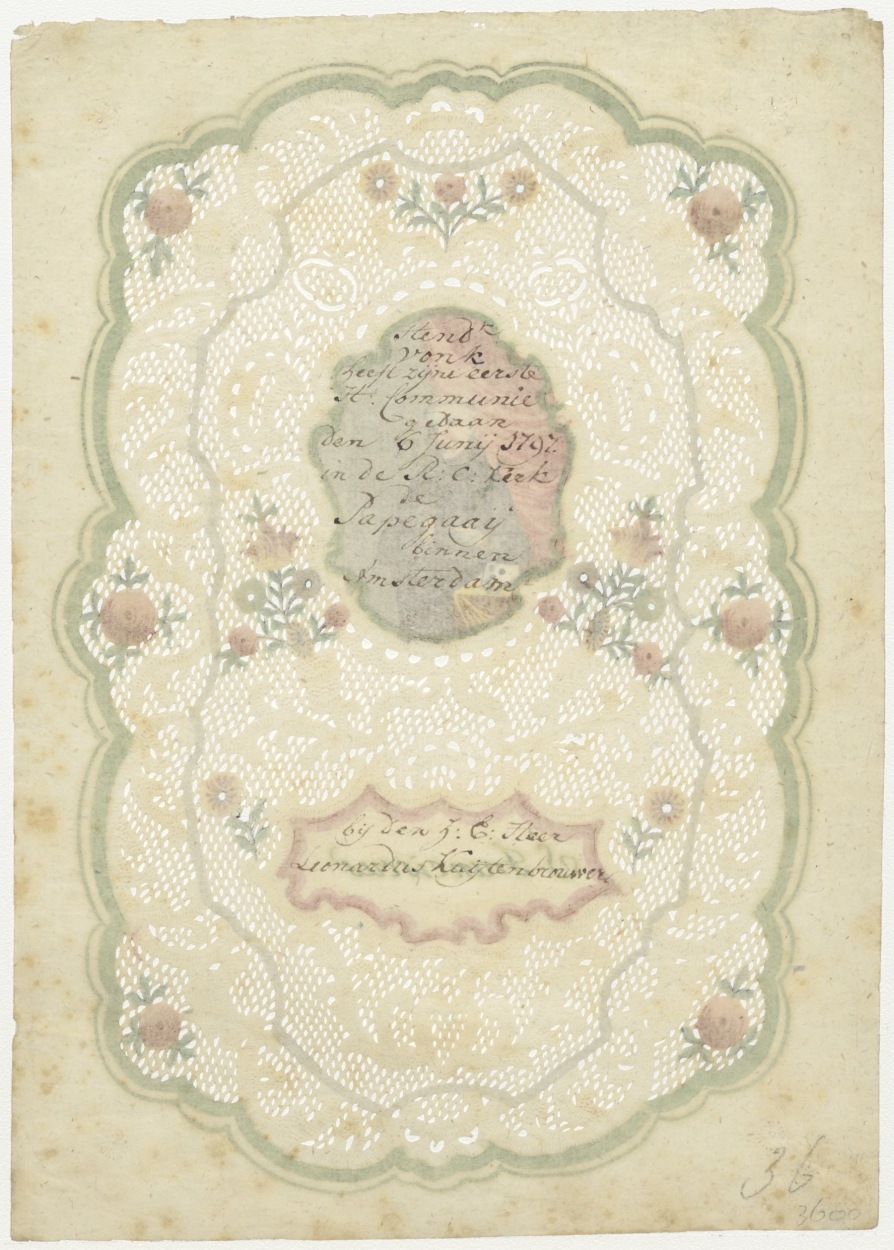 Hendr
Vonk
heeft zijne eerste
H: Communie
gedaan
den 6 Junij 1797.
in de R: C: Kerk
de
Papegaaij
binnen
Amsterdam
bij den Z: E: Heer
Leonardus Kuijtenbrouwer
36
3600